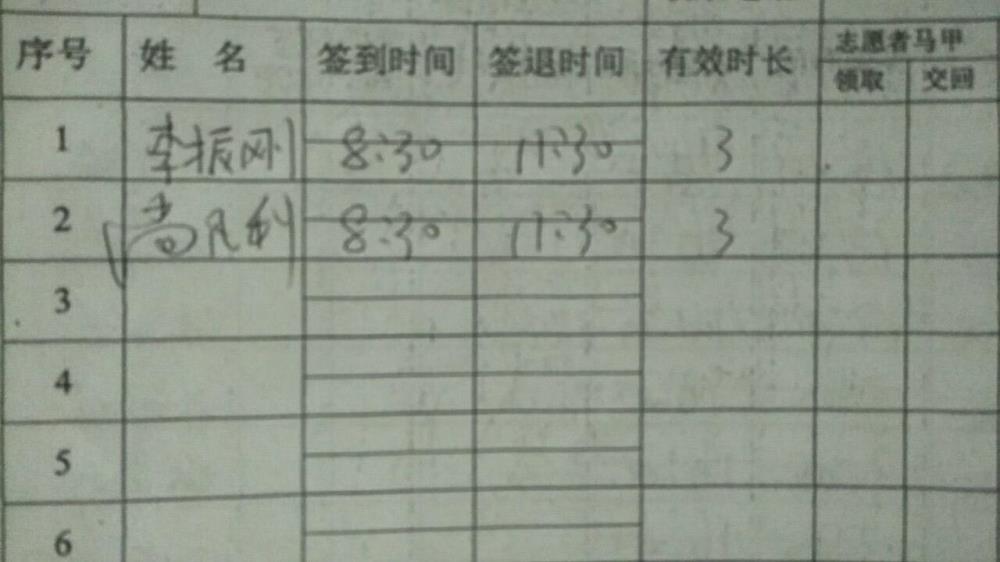 序号 姓 名 签到时间 签退时间 有效时长 志愿者马甲
领取 交回
1 李振刚 8:30 11:30 3
2 尚凡利 8:30 11:30 3
3
4
5
6